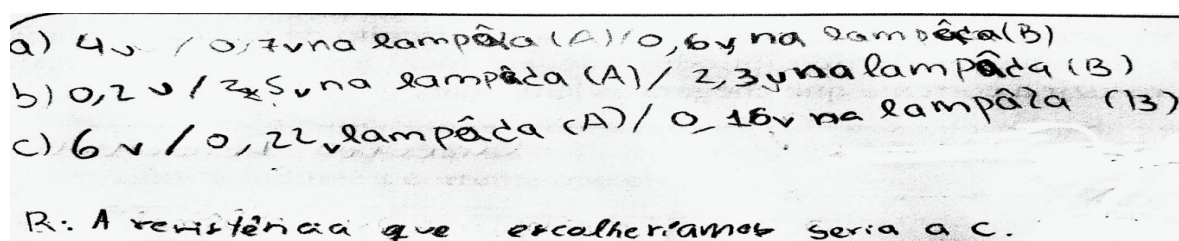 a) 4v / 0,7v na lampâda (A) / 0,6v na lampâda (B)
b) 0,2 v / 2,5v na lampâda (A) / 2,3v na lampâda (B)
c) 6 v / 0,22v lampâda (A) / 0,16v na lampâda (B)
R: A resistência que escolheríamos seria a c.